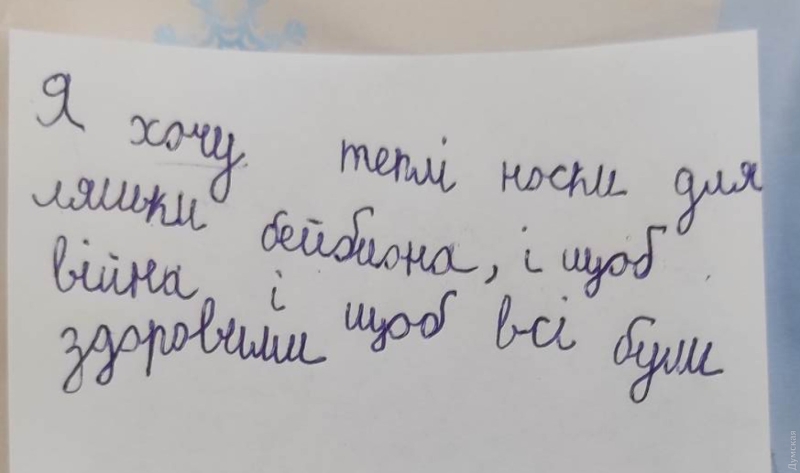 Я хочу теплі носки для
ляшки бейбиона, і щоб
війна і
здоровими щоб всі були
Думская